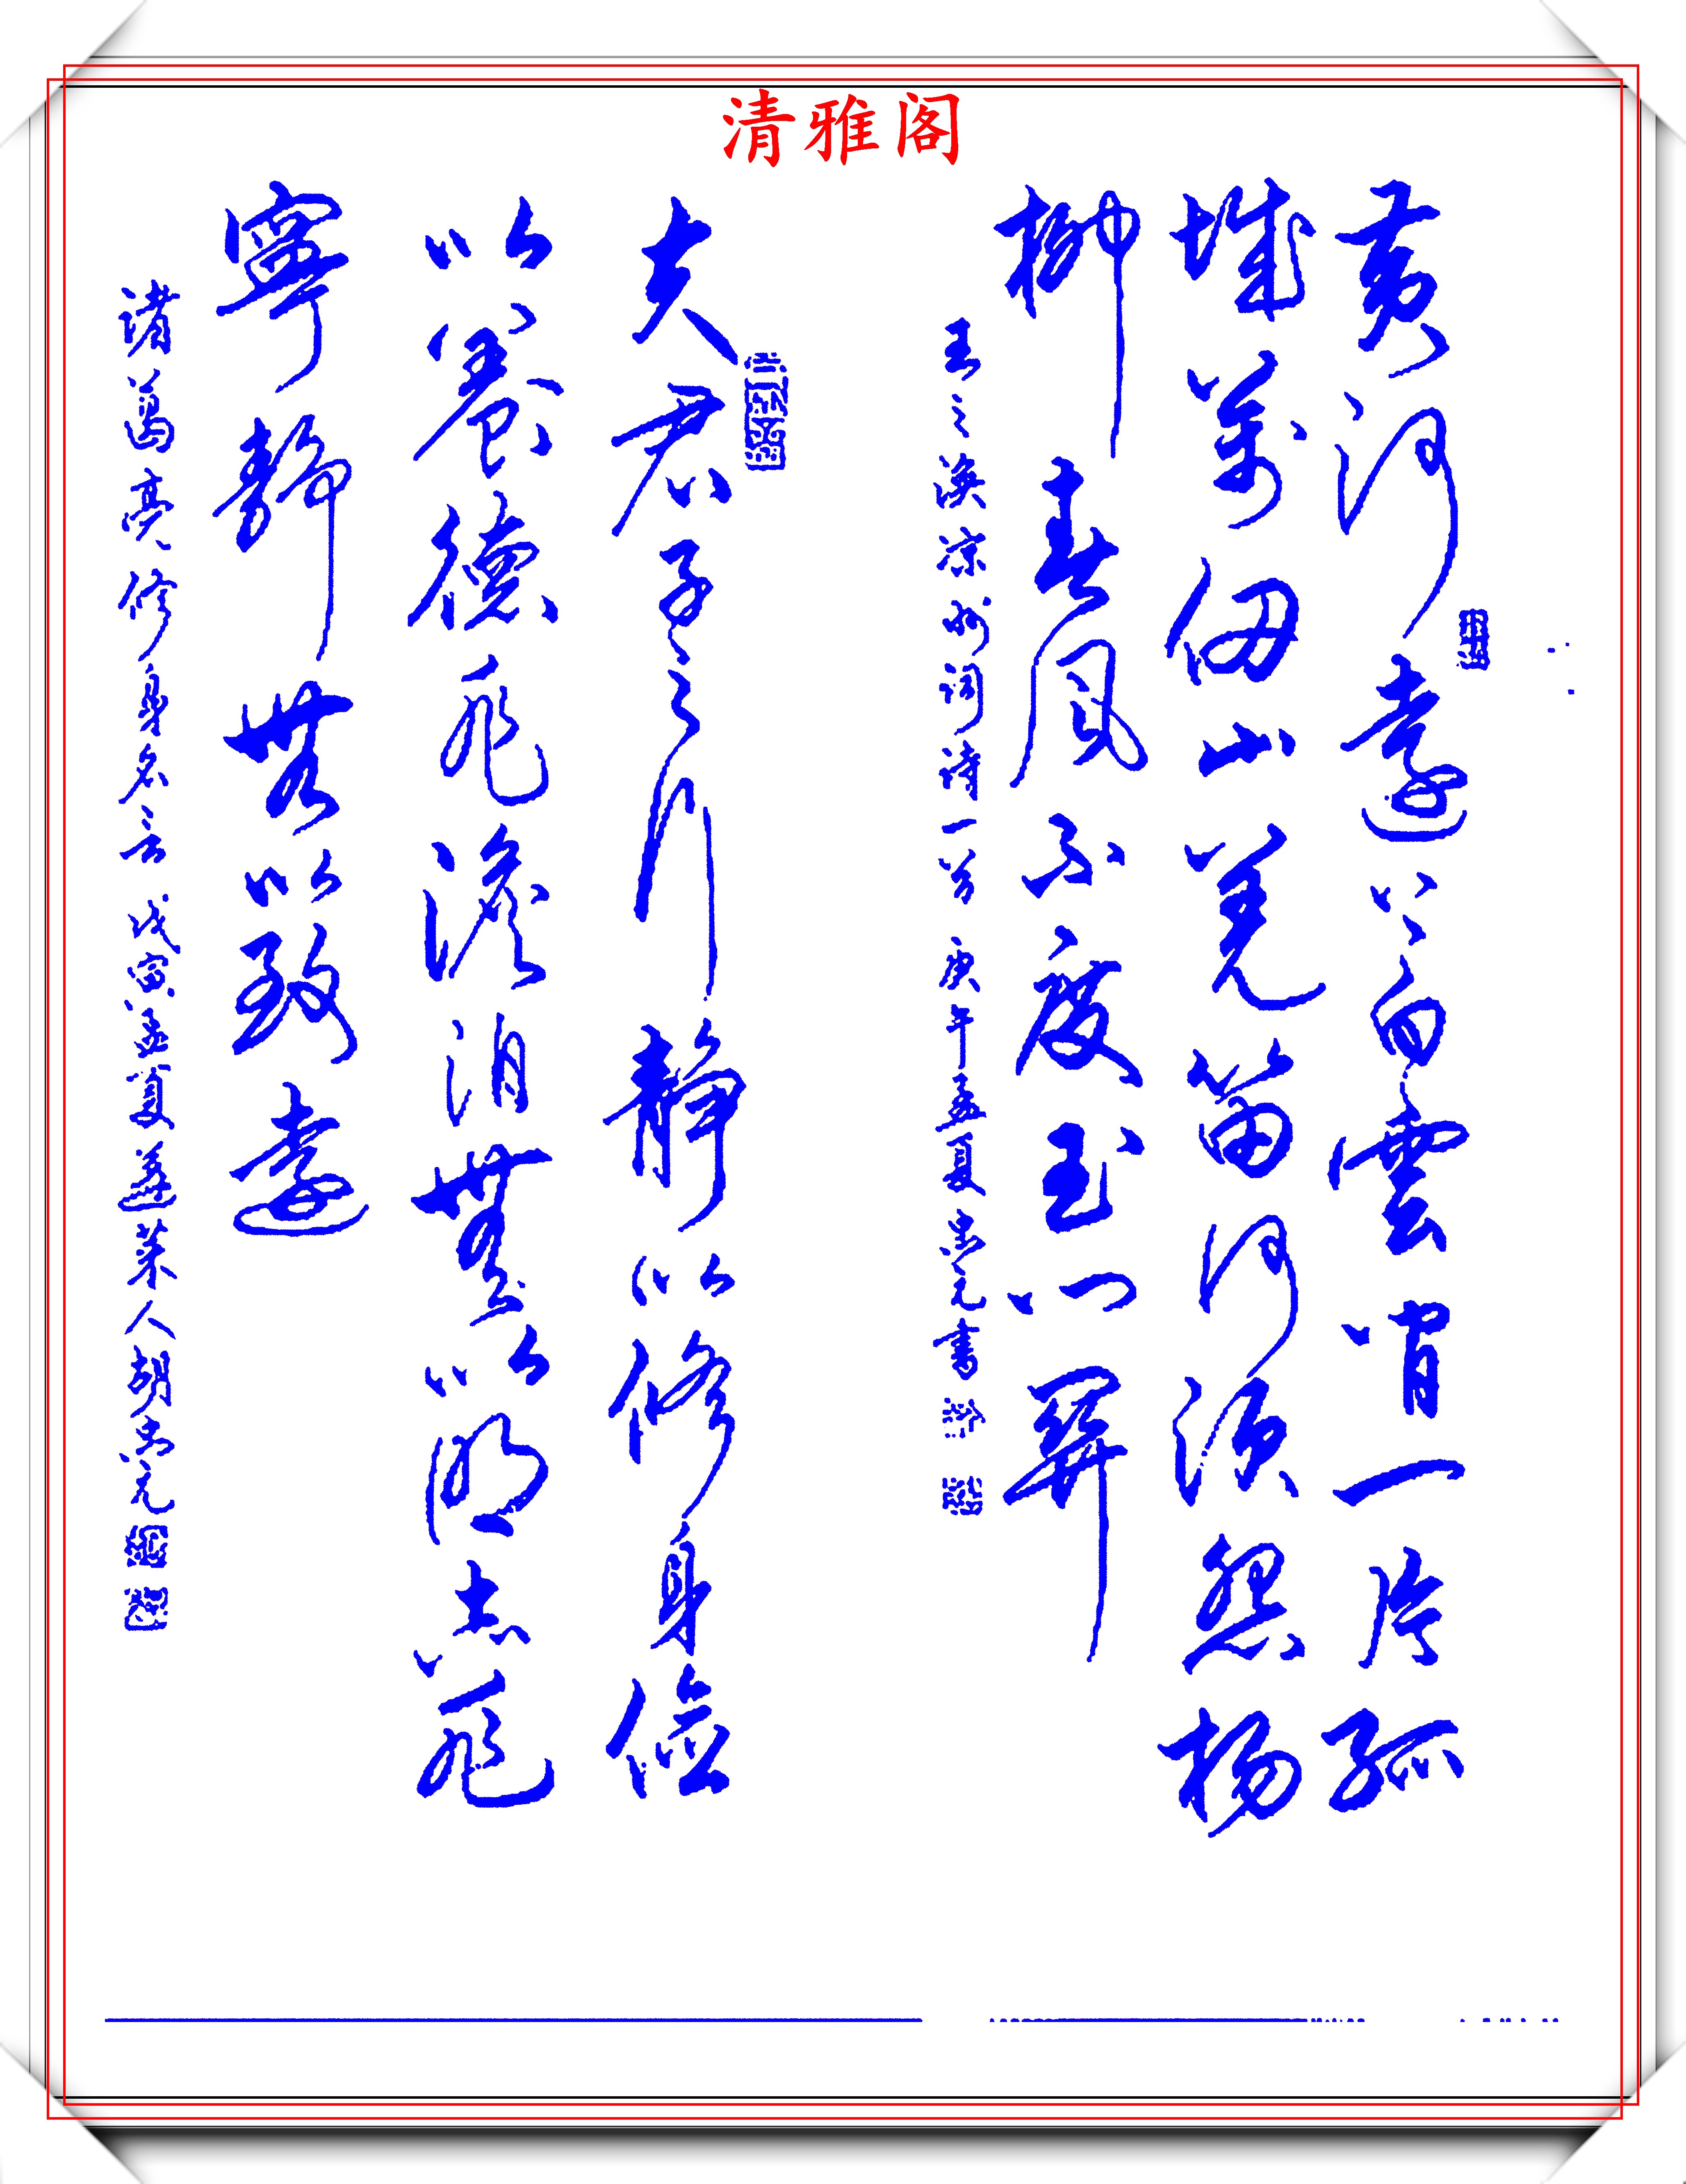 清雅阁
黄河遠上白雲間一片孤
城萬仞山羌笛何須怨楊
柳春風不度玉门關
王之渙凉州词诗一首 庚午孟夏忠元書
夫君子之行静以修身儉
以養德非澹泊無以明志非
寧靜無以致遠
诸葛亮修身名言 戊寅孟夏蓬莱人胡忠元